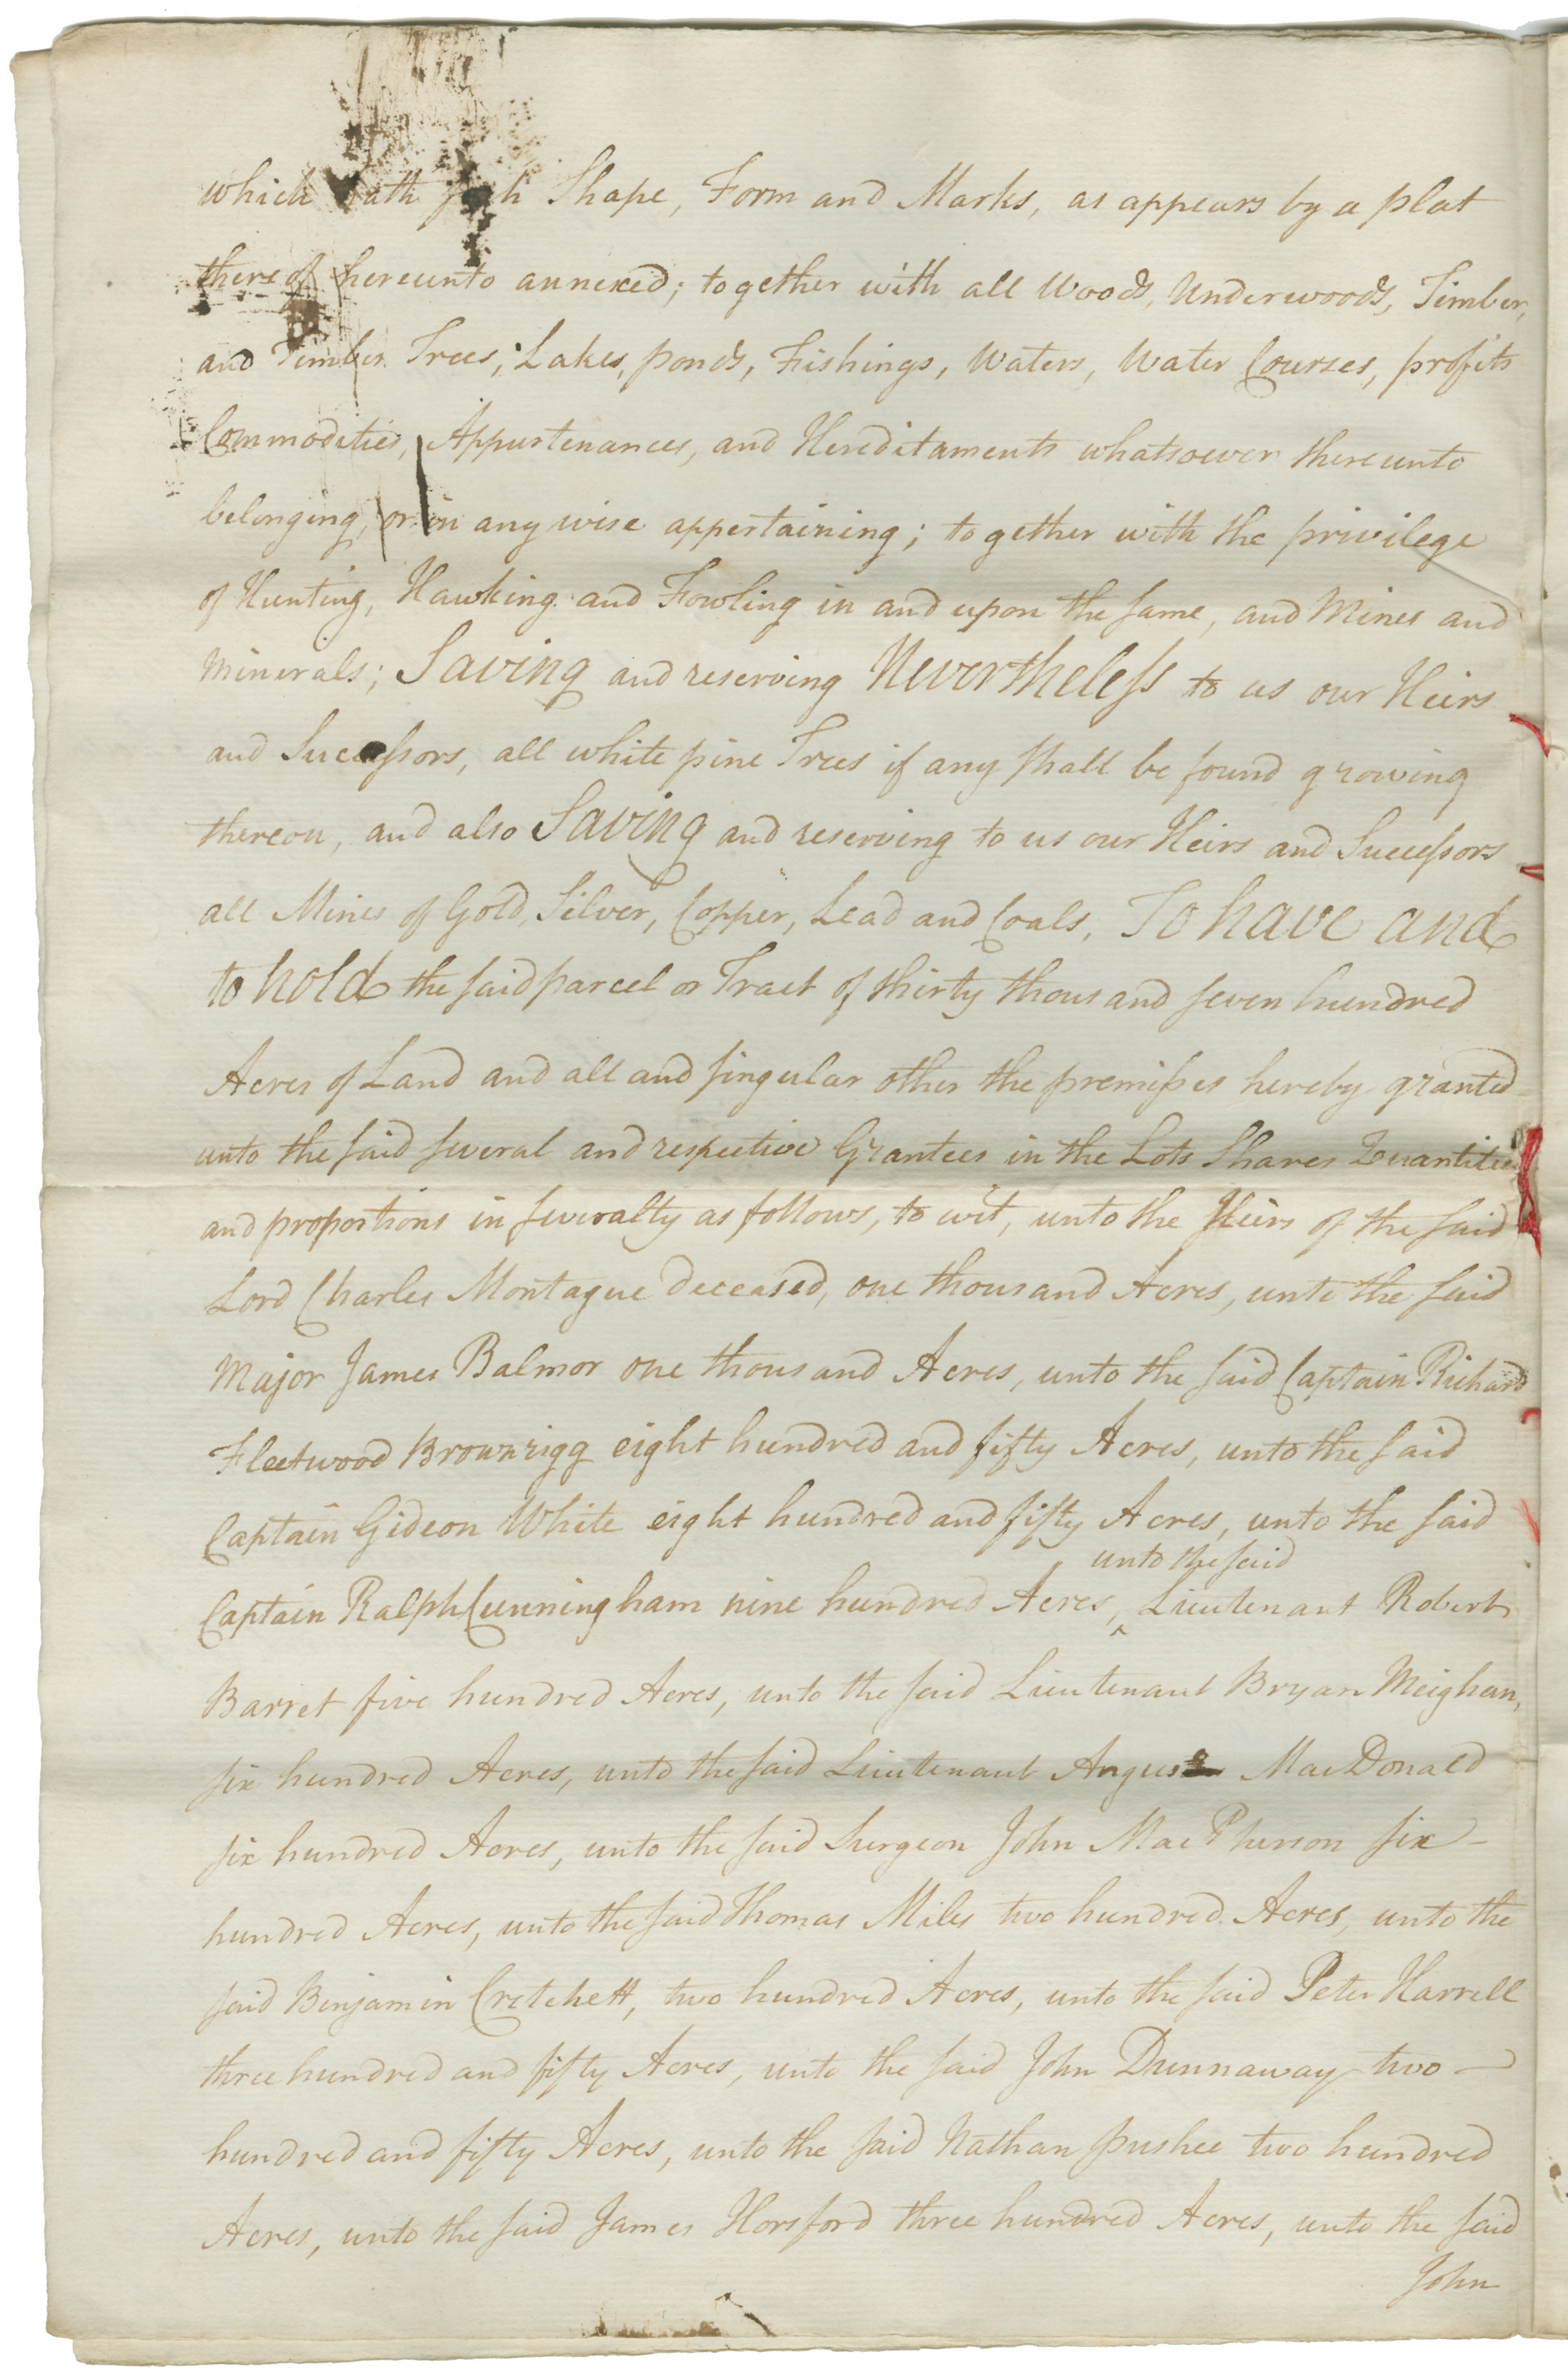 which hath such Shape, Form and Marks, as appears by a plat
thereof hereunto annexed; together with all Woods, Underwoods, Timber,
and Timber Trees, Lakes, ponds, Fishings, Waters, Water Courses, profits
Commodities, Appurtenances, and Hereditaments whatsoever thereunto
belonging, or in any wise appertaining; together with the privilege
of Hunting, Hawking and Fowling in and upon the same, and Mines and
Minerals; Saving and reserving Nevertheless to us our Heirs
and Successors, all white pine Trees if any shall be found growing
thereon, and also Saving and reserving to us our Heirs and Successors
all Mines of Gold, Silver, Copper, Lead and Coals, To have and
to hold the said parcel or Tract of thirty thousand seven hundred
Acres of Land and all and singular other the premisses hereby granted
unto the said several and respective Grantees in the Lots Shares Quantities
and proportions in severalty as follows, to wit, unto the Heirs of the said
Lord Charles Montague deceased, one thousand Acres, unto the said
Major James Balmor one thousand Acres, unto the said Captain Richard
Fleetwood Brownrigg eight hundred and fifty Acres, unto the said
Captain Gideon White eight hundred and fifty Acres, unto the said
unto the said
Captain Ralph Cunningham nine hundred Acres, ‸ Lieutenant Robert
Barret five hundred Acres, unto the said Lieutenant Bryan Meighan,
six hundred Acres, unto the said Lieutenant Angus MacDonald
six hundred Acres, unto the said Surgeon John MacPherson six
hundred Acres, unto the said Thomas Miles two hundred Acres, unto the
said Benjamin Cretchett, two hundred Acres, unto the said Peter Harrell
three hundred and fifty Acres, unto the said John Dunnaway two
hundred and fifty Acres, unto the said Nathan pushee two hundred
Acres, unto the said James Horsford three hundred Acres, unto the said
John